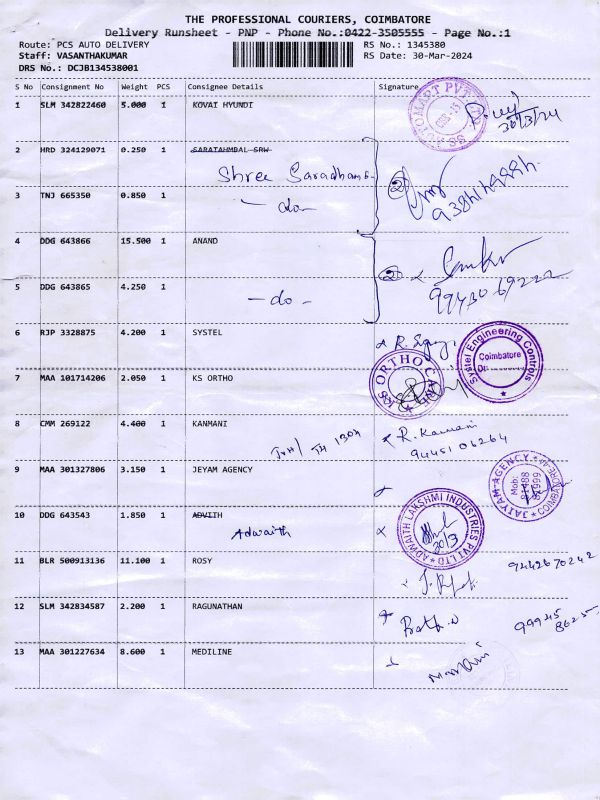 THE PROFESSIONAL COURIERS, COIMBATORE
Delivery Runsheet - PNP - Phone No.:0422-3505555 - Page No.:1
Route: PCS AUTO DELIVERY RS No.: 1345380
Staff: VASANTHAKUMAR RS Date: 30-Mar-2024
DRS No.: DCJB134538001
S No Consignment No Weight PCS Consignee Details Signature
1 SLM 342822460 5.000 1 KOVAI HYUNDI
30/3/24
2 HRD 324129071 0.250 1 SARATAHMBAL SRW
Shree Saradhamb
3 TNJ 665350 0.850 1
- do -
4 DDG 643866 15.500 1 ANAND
5 DDG 643865 4.250 1
- do -
9943069222
6 RJP 3328875 4.200 1 SYSTEL
Systel Engineering Controls
Coimbatore
Dt:
7 MAA 101714206 2.050 1 KS ORTHO
KS ORTHO CARE
8 CMM 269122 4.400 1 KANMANI
R. Kanmani
9445106264
9 MAA 301327806 3.150 1 JEYAM AGENCY
JAIYAM AGENCY COIMBATORE
Mob:
10 DDG 643543 1.850 1 ADVITH
Adwaith
ADWAITH LAKSHMI INDUSTRIES PVT LTD
20/3
11 BLR 500913136 11.100 1 ROSY
9442670242
12 SLM 342834587 2.200 1 RAGUNATHAN
99945
86255
13 MAA 301227634 8.600 1 MEDILINE